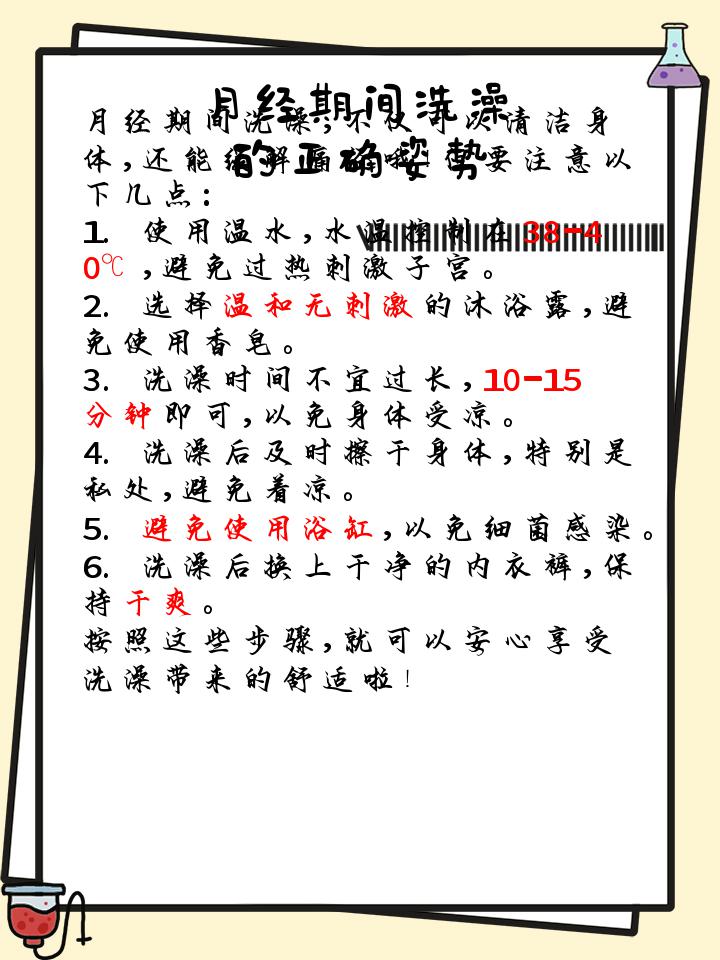 月经期间洗澡
的正确姿势
月经期间洗澡，不仅可以清洁身
体，还能缓解痛经哦！但要注意以
下几点：
1. 使用温水，水温控制在38-4
0℃，避免过热刺激子宫。
2. 选择温和无刺激的沐浴露，避
免使用香皂。
3. 洗澡时间不宜过长，10-15
分钟即可，以免身体受凉。
4. 洗澡后及时擦干身体，特别是
私处，避免着凉。
5. 避免使用浴缸，以免细菌感染。
6. 洗澡后换上干净的内衣裤，保
持干爽。
按照这些步骤，就可以安心享受
洗澡带来的舒适啦！